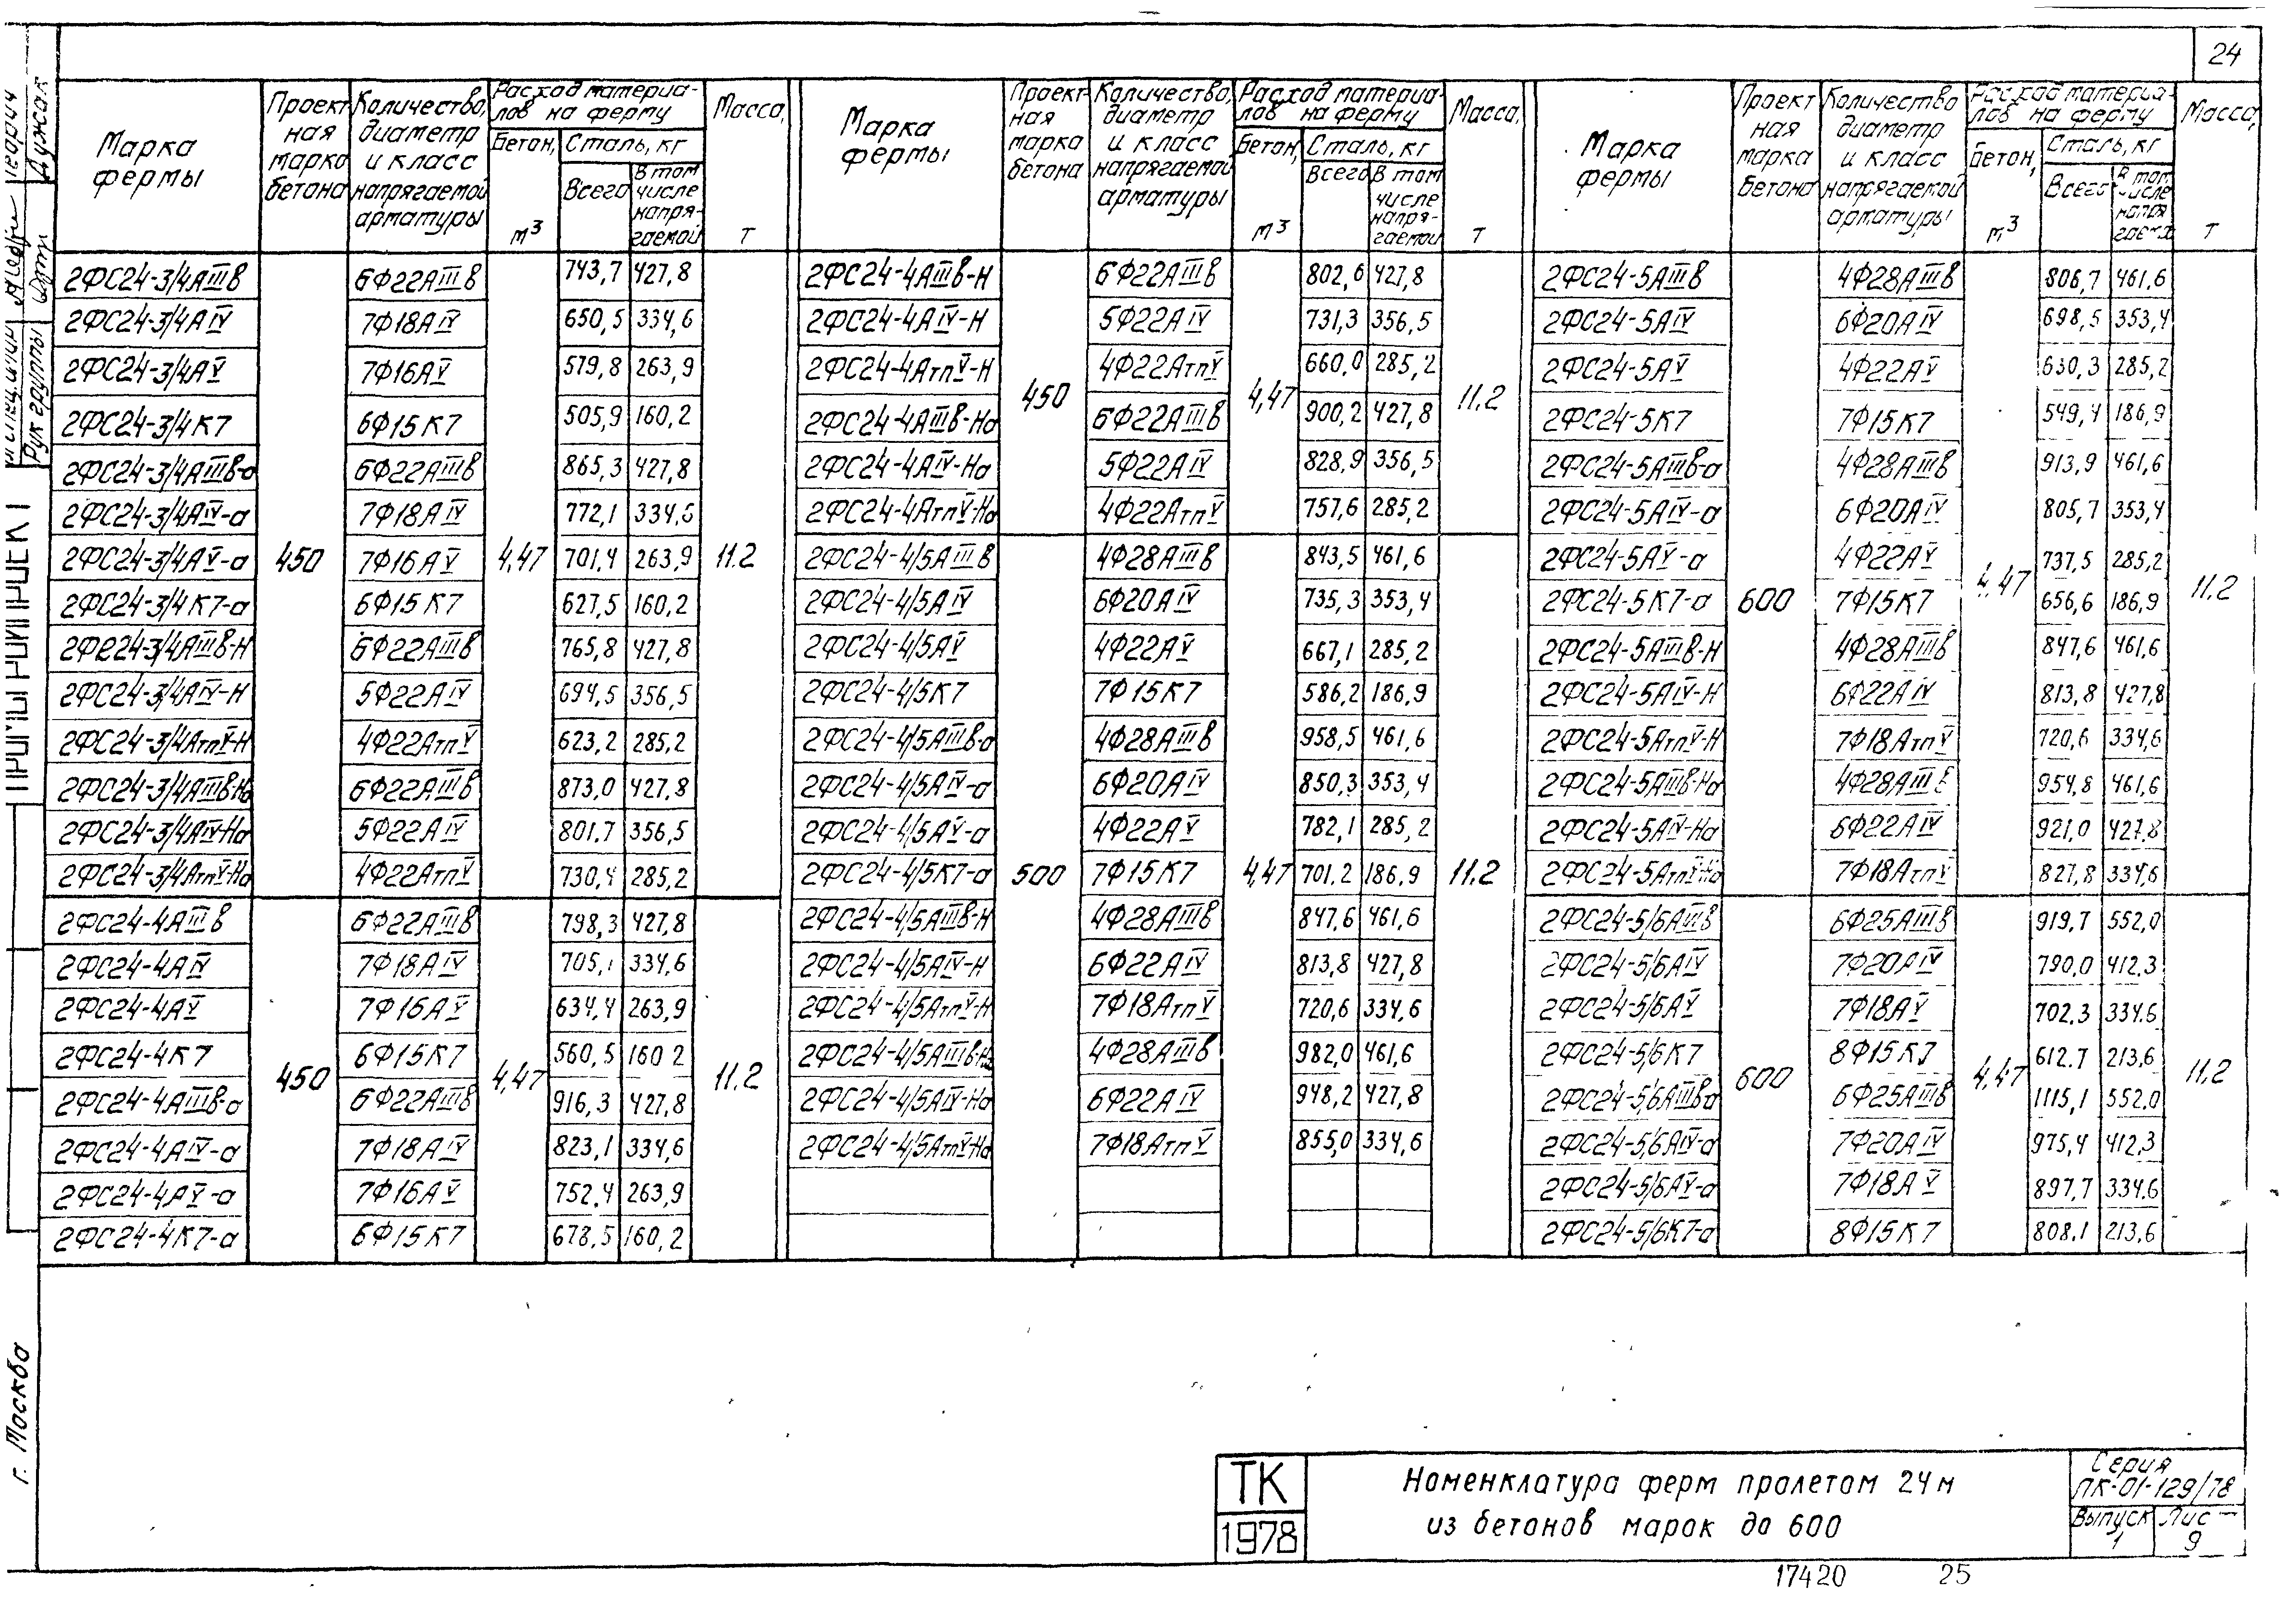 24
Марка фермы | Проектная марка бетона | Количество, диаметр и класс напрягаемой арматуры | Расход материалов на ферму | Бетон, м³ | Сталь, кг | Всего | В том числе напрягаемой | Масса, т
2ФС24-3/4АIIIв 6Ф22АIIIв 743,7 427,8
2ФС24-3/4АIV 7Ф18АIV 650,5 334,6
2ФС24-3/4АV 7Ф16АV 579,8 263,9
2ФС24-3/4К7 6Ф15К7 505,9 160,2
2ФС24-3/4АIIIв-а 6Ф22АIIIв 865,3 427,8
2ФС24-3/4АIV-а 7Ф18АIV 772,1 334,6
2ФС24-3/4АV-а 450 7Ф16АV 4,47 701,4 263,9 11.2
2ФС24-3/4К7-а 6Ф15К7 627,5 160,2
2ФС24-3/4АIIIв-Н 6Ф22АIIIв 765,8 427,8
2ФС24-3/4АIV-Н 5Ф22АIV 694,5 356,5
2ФС24-3/4АтпV-Н 4Ф22АтпV 623,2 285,2
2ФС24-3/4АIIIв-На 6Ф22АIIIв 873,0 427,8
2ФС24-3/4АIV-На 5Ф22АIV 801,7 356,5
2ФС24-3/4АтпV-На 4Ф22АтпV 730,4 285,2
2ФС24-4АIIIв 6Ф22АIIIв 798,3 427,8
2ФС24-4АIV 7Ф18АIV 705,1 334,6
2ФС24-4АV 7Ф16АV 634,4 263,9
2ФС24-4К7 450 6Ф15К7 4,47 560,5 160 2 11.2
2ФС24-4АIIIв-а 6Ф22АIIIв 916,3 427,8
2ФС24-4АIV-а 7Ф18АIV 823,1 334,6
2ФС24-4АV-а 7Ф16АV 752,4 263,9
2ФС24-4К7-а 6Ф15К7 678,5 160,2
Марка фермы | Проектная марка бетона | Количество, диаметр и класс напрягаемой арматуры | Расход материалов на ферму | Бетон, м³ | Сталь, кг | Всего | В том числе напрягаемой | Масса, т
2ФС24-4АIIIв-Н 6Ф22АIIIв 802,6 427,8
2ФС24-4АIV-Н 5Ф22АIV 731,3 356,5
2ФС24-4АтпV-Н 450 4Ф22АтпV 4,47 660,0 285,2 11.2
2ФС24-4АIIIв-На 6Ф22АIIIв 900,2 427,8
2ФС24-4АIV-На 5Ф22АIV 828,9 356,5
2ФС24-4АтпV-На 4Ф22АтпV 757,6 285,2
2ФС24-4/5АIIIв 4Ф28АIIIв 843,5 461,6
2ФС24-4/5АIV 6Ф20АIV 735,3 353,4
2ФС24-4/5АV 4Ф22АV 667,1 285,2
2ФС24-4/5К7 7Ф15К7 586,2 186,9
2ФС24-4/5АIIIв-а 4Ф28АIIIв 958,5 461,6
2ФС24-4/5АIV-а 6Ф20АIV 850,3 353,4
2ФС24-4/5АV-а 4Ф22АV 782,1 285,2
2ФС24-4/5К7-а 500 7Ф15К7 4,47 701,2 186,9 11.2
2ФС24-4/5АIIIв-Н 4Ф28АIIIв 847,6 461,6
2ФС24-4/5АIV-Н 6Ф22АIV 813,8 427,8
2ФС24-4/5АтпV-Н 7Ф18АтпV 720,6 334,6
2ФС24-4/5АIIIв-На 4Ф28АIIIв 982,0 461,6
2ФС24-4/5АIV-На 6Ф22АIV 948,2 427,8
2ФС24-4/5АтпV-На 7Ф18АтпV 855,0 334,6
Марка фермы | Проектная марка бетона | Количество диаметр и класс напрягаемой арматуры | Расход материалов на ферму | Бетон, м³ | Сталь, кг | Всего | В том числе напрягаемой | Масса, т
2ФС24-5АIIIв 4Ф28АIIIв 806,7 461,6
2ФС24-5АIV 6Ф20АIV 698,5 353,4
2ФС24-5АV 4Ф22АV 630,3 285,2
2ФС24-5К7 7Ф15К7 549,4 186,9
2ФС24-5АIIIв-а 4Ф28АIIIв 913,9 461,6
2ФС24-5АIV-а 6Ф20АIV 805,7 353,4
2ФС24-5АV-а 4Ф22АV 737,5 285,2
2ФС24-5К7-а 600 7Ф15К7 4,47 656,6 186,9 11.2
2ФС24-5АIIIв-Н 4Ф28АIIIв 847,6 461,6
2ФС24-5АIV-Н 6Ф22АIV 813,8 427,8
2ФС24-5АтпV-Н 7Ф18АтпV 720,6 334,6
2ФС24-5АIIIв-На 4Ф28АIIIв 954,8 461,6
2ФС24-5АIV-На 6Ф22АIV 921,0 427,8
2ФС24-5АтпV-На 7Ф18АтпV 827,8 334,6
2ФС24-5/6АIIIв 6Ф25АIIIв 919,7 552,0
2ФС24-5/6АIV 7Ф20АIV 790,0 412,3
2ФС24-5/6АV 7Ф18АV 702,3 334,6
2ФС24-5/6К7 600 8Ф15К7 4,47 612,7 213,6 11.2
2ФС24-5/6АIIIв-а 6Ф25АIIIв 1115,1 552,0
2ФС24-5/6АIV-а 7Ф20АIV 975,4 412,3
2ФС24-5/6АV-а 7Ф18АV 897,7 334,6
2ФС24-5/6К7-а 8Ф15К7 808,1 213,6
Рук группы
Дужак
г. Москва
ТК
1978
Номенклатура ферм пролетом 24м
из бетонов марок до 600
Серия
ПК-01-129/78
Выпуск 1
Лис 9
17420 25